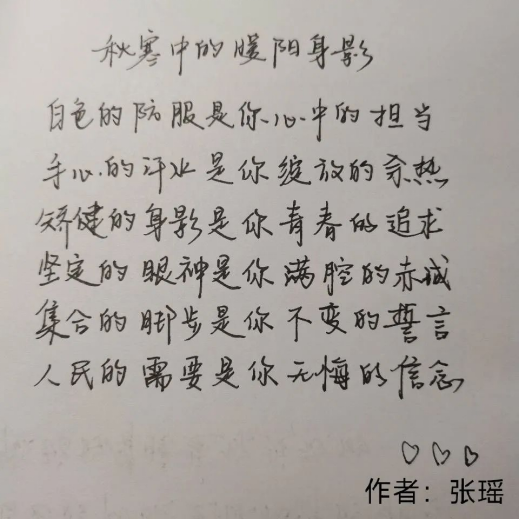 秋寒中的暖阳身影
白色的防服是你心中的担当
手心的汗水是你绽放的余热
矫健的身影是你青春的追求
坚定的眼神是你满腔的赤诚
集合的脚步是你不变的誓言
人民的需要是你无悔的信念
作者：张瑶